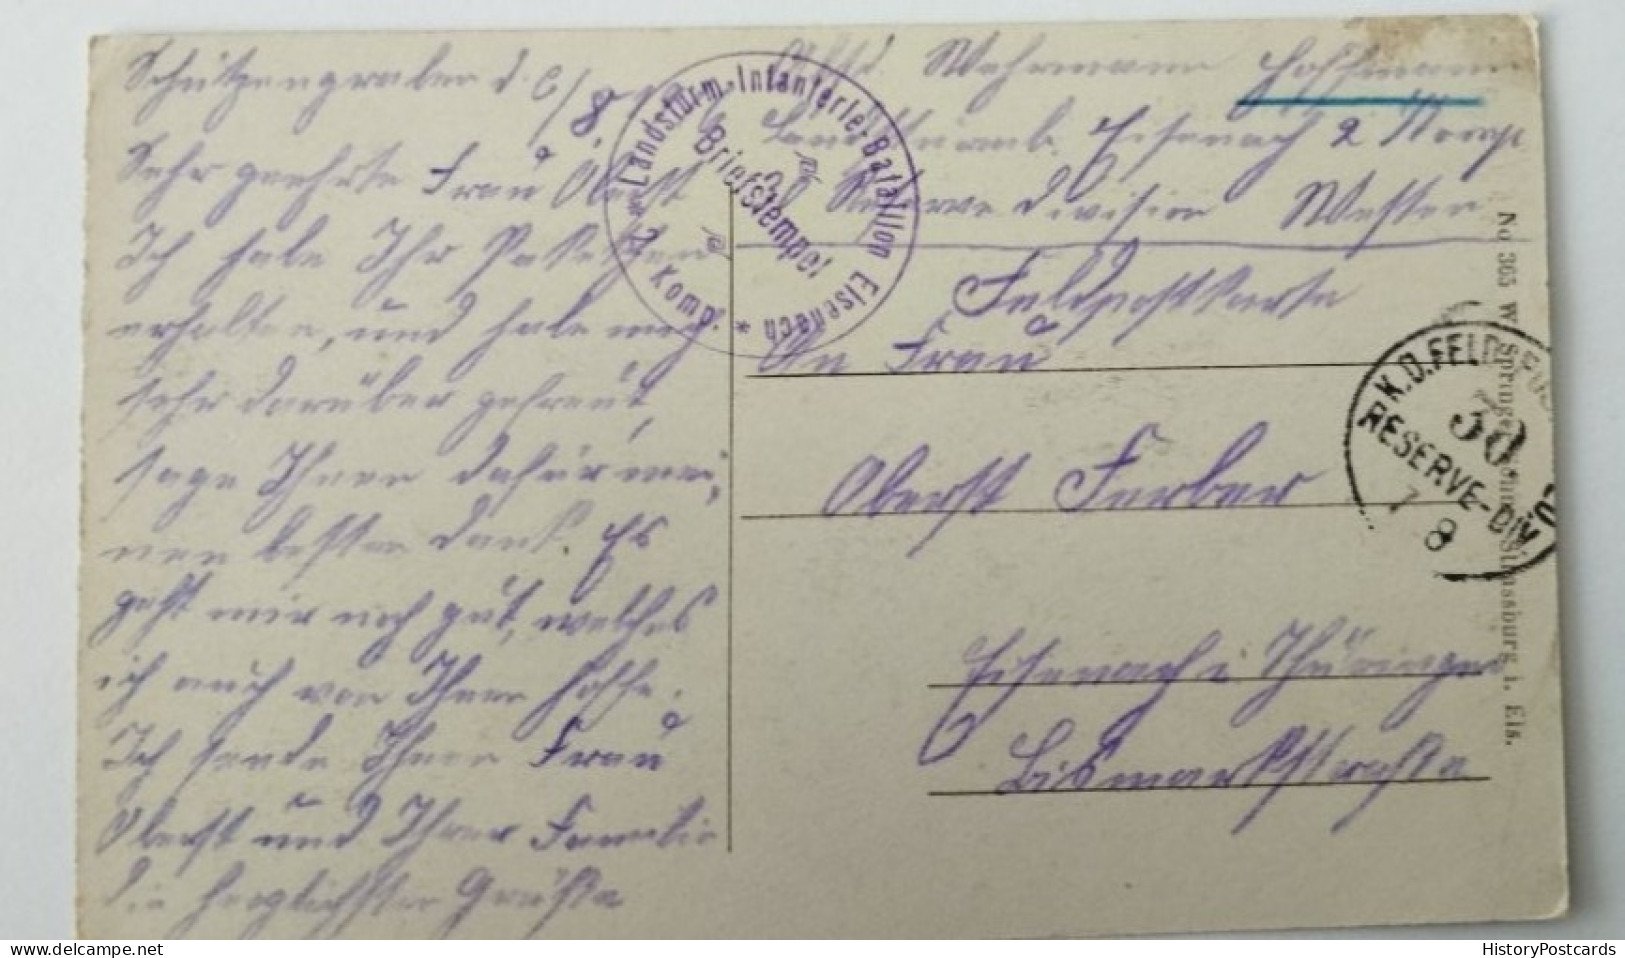 Schützengraben d. 6/8.
Sehr geehrte Frau Oberst
Ich habe Ihr Paketchen
erhalten, und habe mich
sehr darüber gefreut,
sage Ihnen dafür mei-
nen besten Dank. Es
geht mir noch gut, welches
ich auch von Ihnen hoffe.
Ich sende Ihnen Frau
Oberst und Ihrer Familie
die herzlichsten Grüße
2. Landsturm-Infanterie-Bataillon Eisenach * Komp. *
Briefstempel
Absd. Wehrmann Hoffmann
Landsturmb. Eisenach 2 Komp
Reserve division Westen
Feldpostkarte
An Frau
Oberst Ferber
Eisenach i Thüringen
Bismarkstraße
K.D.FELDPOST
30
RESERVE-DIV
7 8
No 365 W. Strassburg i. Els.
delcampe.net
HistoryPostcards